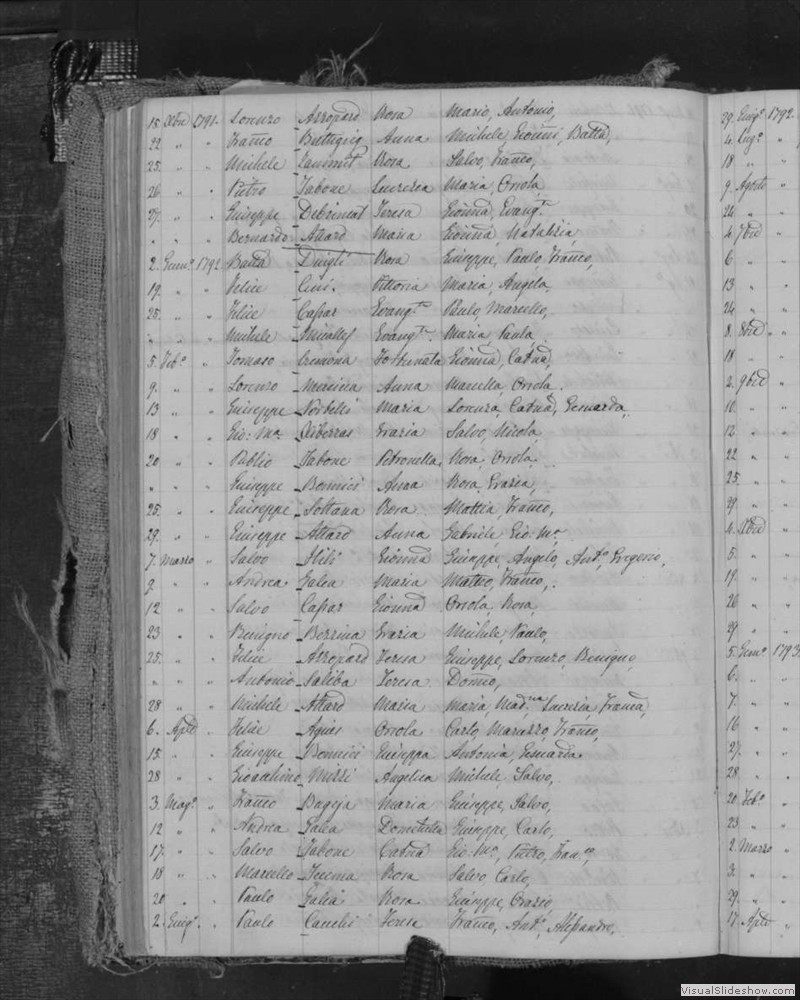 15 Xbre 1791. Lorenzo Azzopard Rosa Mario, Antonio,
22 " " Franco Buttigig Anna Michele, Gionni, Batta,
25. " " Michele Zammit Rosa Salvo, Franco,
26 " " Pietro Tabone Lucrezia Maria, Orsola,
27. " " Giuseppe Debrincat Teresa Gionna, Evangta
" " " Bernardo Attard Maria Gionna, Natalizia,
2. Gennº 1792 Batta Dingli Rosa Giuseppe, Paulo, Franco,
19. " " Felice Cini Vittoria Maria, Angela,
25. " " Felice Caffar Evangta Paulo, Marcello,
" " " Michele Micallef Evangta. Maria, Paula,
5. Febº " Tomaso Cremona Fortunata Gionna, Catna,
9. " " Lorenzo Anna Mariella, Orsola.
13 " " Giuseppe Maria Lorenza, Catna,
18 " " Gio: Mª Grazia Salvo, Nicola,
20 " " Publio Tabone Petronella, Rosa, Orsola,
" " " Giuseppe Bonnici Anna Rosa, Grazia,
25. " " Giuseppe Rosa Mattia, Franco,
29. " " Giuseppe Attard Anna Gabriele, Gio: Mª
7. Marzo " Salvo Gionna Giuseppe, Angelo, Antº,
9. " " Andrea Galea Maria Matteo, Franco,
12 " " Salvo Caffar Gionna Orsola, Rosa,
23 " " Benigno Bezzina Grazia Michele, Paulo,
25. " " Felice Azzopard Teresa Giuseppe, Lorenzo, Benigno,
" " " Antonio Saliba Teresa
28 " " Michele Attard Maria Maria, Madna, Lucrezia, Franca,
6. Aple " Felice Agius Orsola Carlo, Franco,
15. " " Giuseppe Bonnici Giuseppa Antonia,
28 " " Gioacchino Mizzi Angelica Michele, Salvo,
3. Magº " Franco Bugeja Maria Giuseppe, Salvo,
12 " " Andrea Galea Domitilla Giuseppe, Carlo,
17. " " Salvo Tabone Catna Gio: Mª, Pietro, Franco
18 " " Marcello Rosa Salvo, Carlo,
20. " " Paulo Galea Rosa Giuseppe, Orazio,
2. Giugº. " Paulo Teresa Franco, Antº, Alessandro,
29. Giugº 1792.
4. Lugº "
18 " "
9. Agosto "
26 " "
4. 7bre "
6 " "
13 " "
24 " "
8. 8bre "
18 " "
2. 9bre "
10. " "
12. " "
22 " "
25. " "
29. " "
4. Xbre "
5. " "
19. " "
26 " "
29 " "
5. Gennº 1793.
6. " "
7. " "
16 " "
27. " "
28 " "
20. Febº "
23 " "
2. Marzo "
3. " "
29. " "
17. Aple "
VisualSlideshow.com